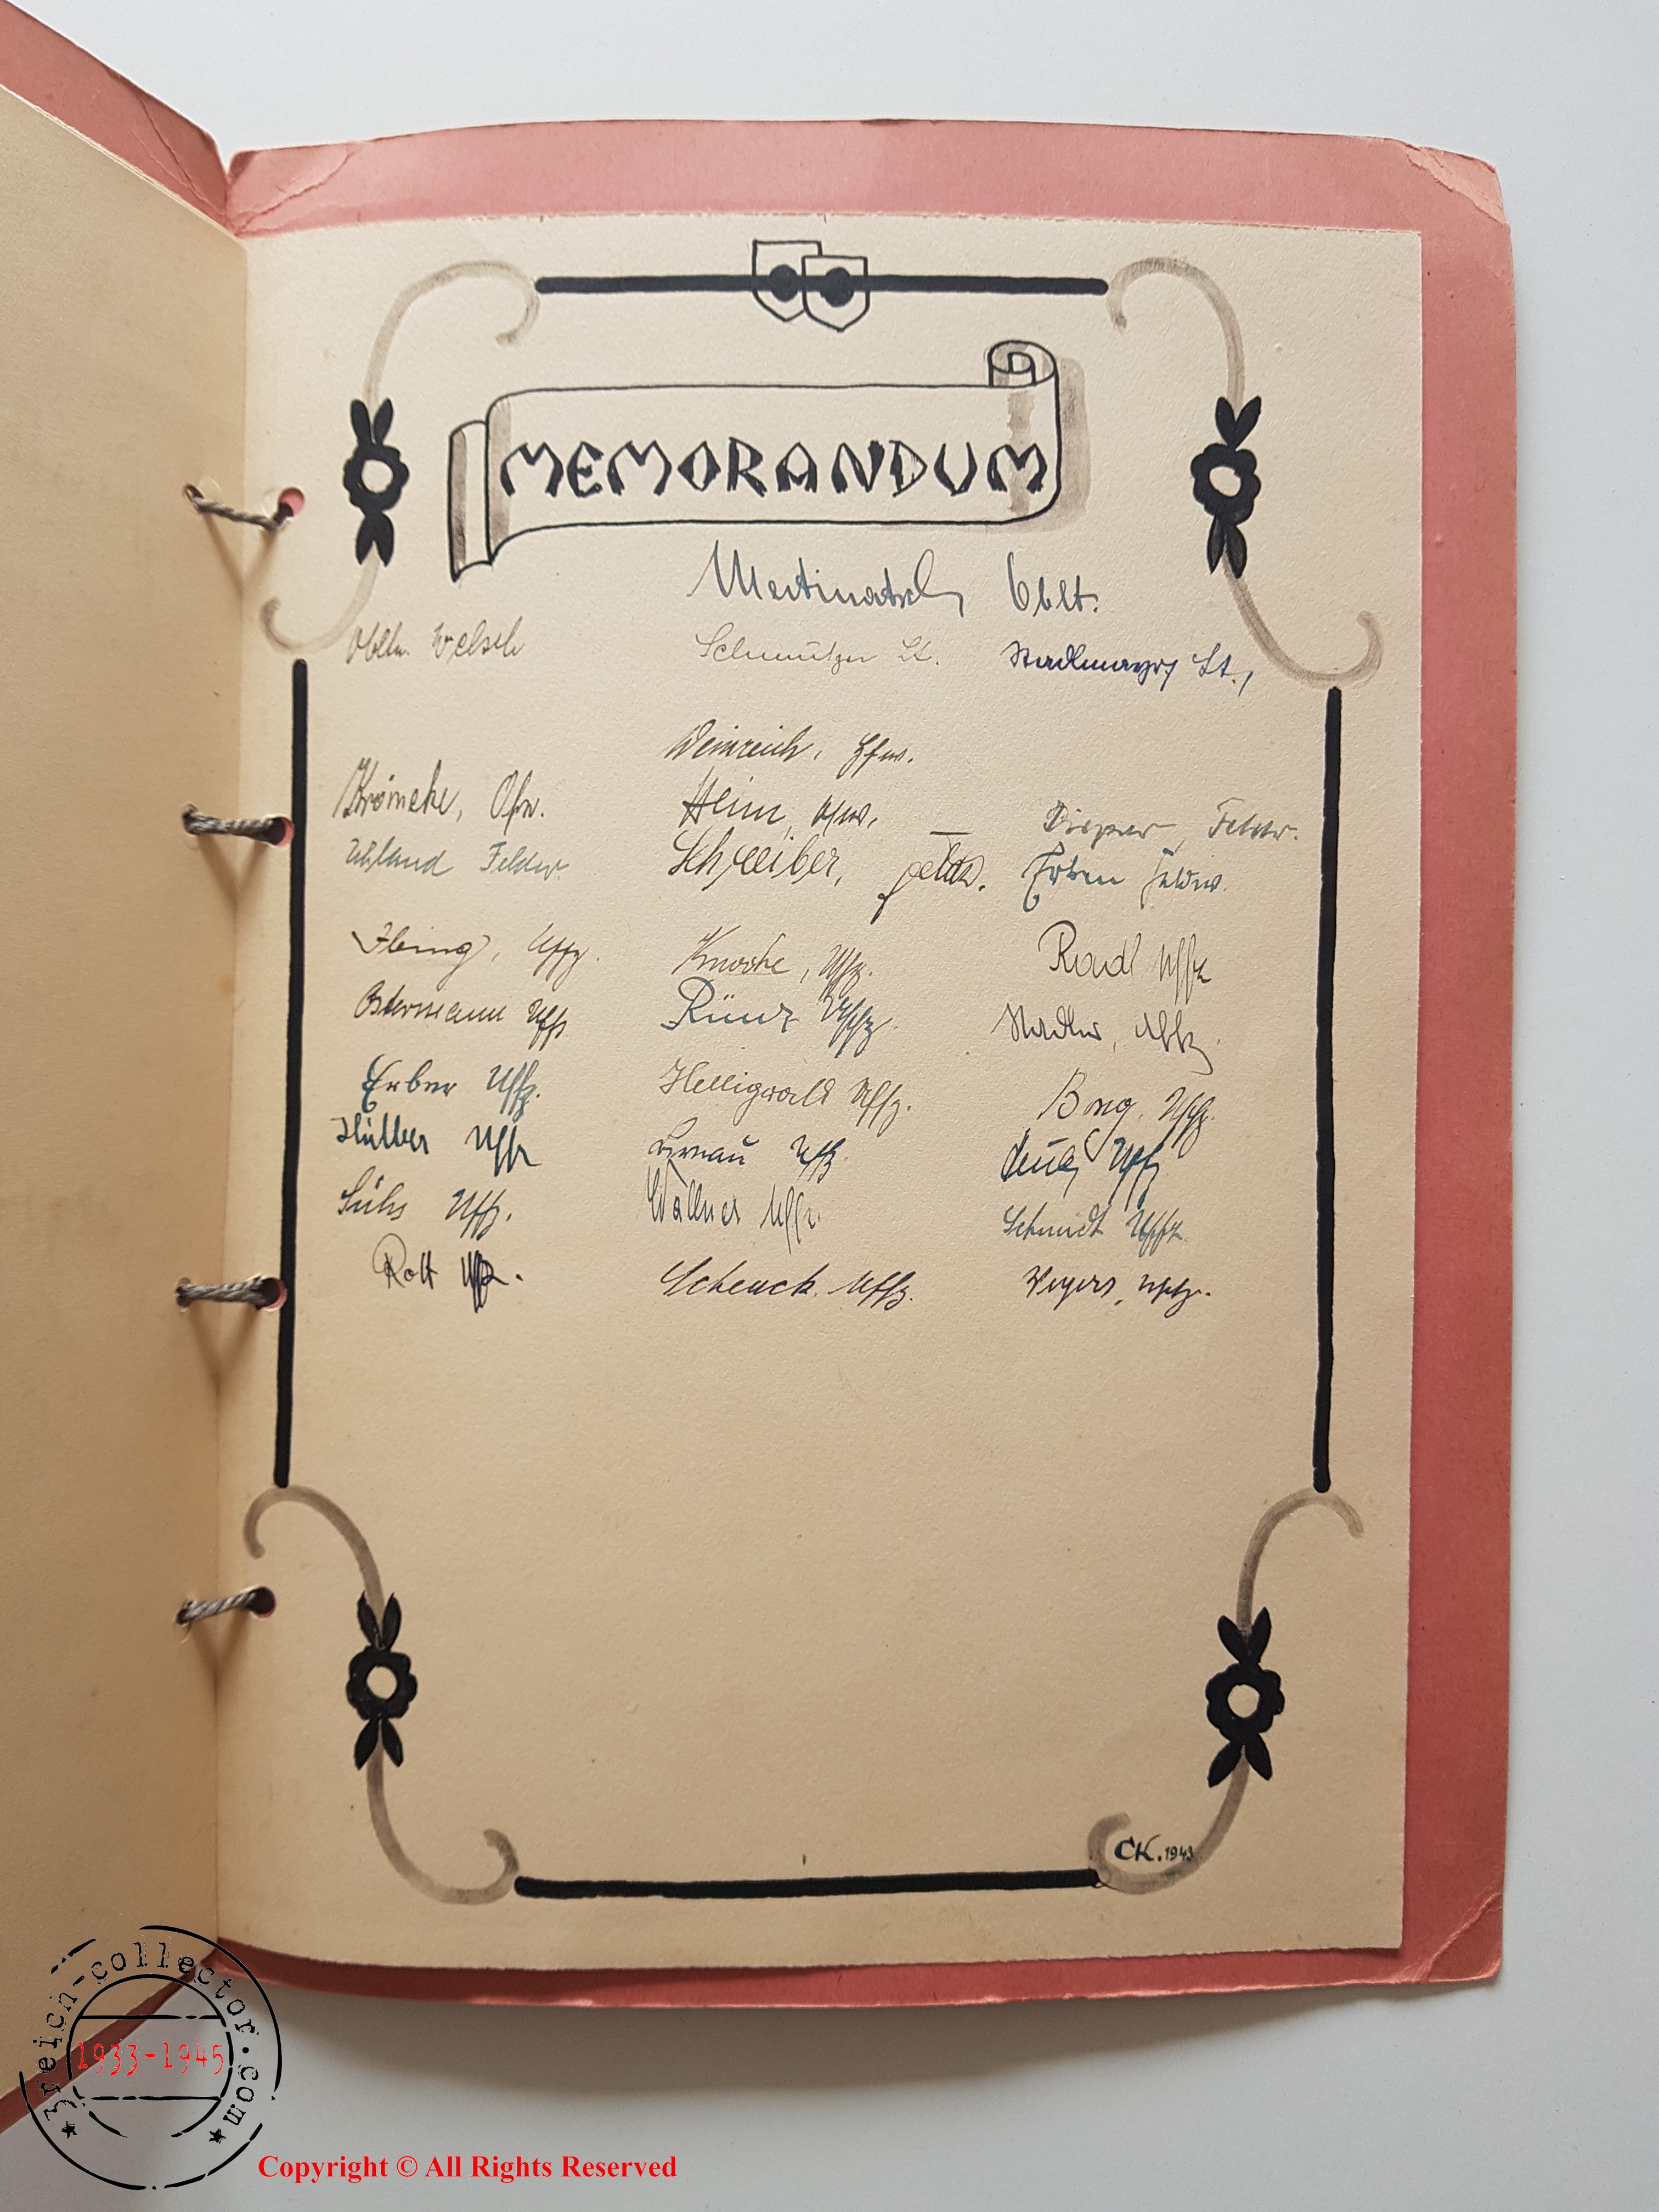 MEMORANDUM
Oblt.
Welsch Schmutzer Lt. Stadlmayr Lt.,
Weinreich, Hfw.
Krömeke, Ofw. Heim, Ofw. Feldw.
Uhland Feldw. Schreiber, Feldw. Erben Feldw.
Uffz. Knoche, Uffz. Raudl Uffz
Ostermann Uffz Uffz. Stadler, Uffz.
Erber Uffz. Heiligwald Uffz. Borg, Uffz.
Uffz Lernau Uffz. Uffz
Sühs Uffz. Wallner Uffz. Schmidt Uffz
Rott Uffz. Schenck Uffz. Wegers, Uffz.
CK. 1943
3reich-collector.com
1933-1945
Copyright © All Rights Reserved